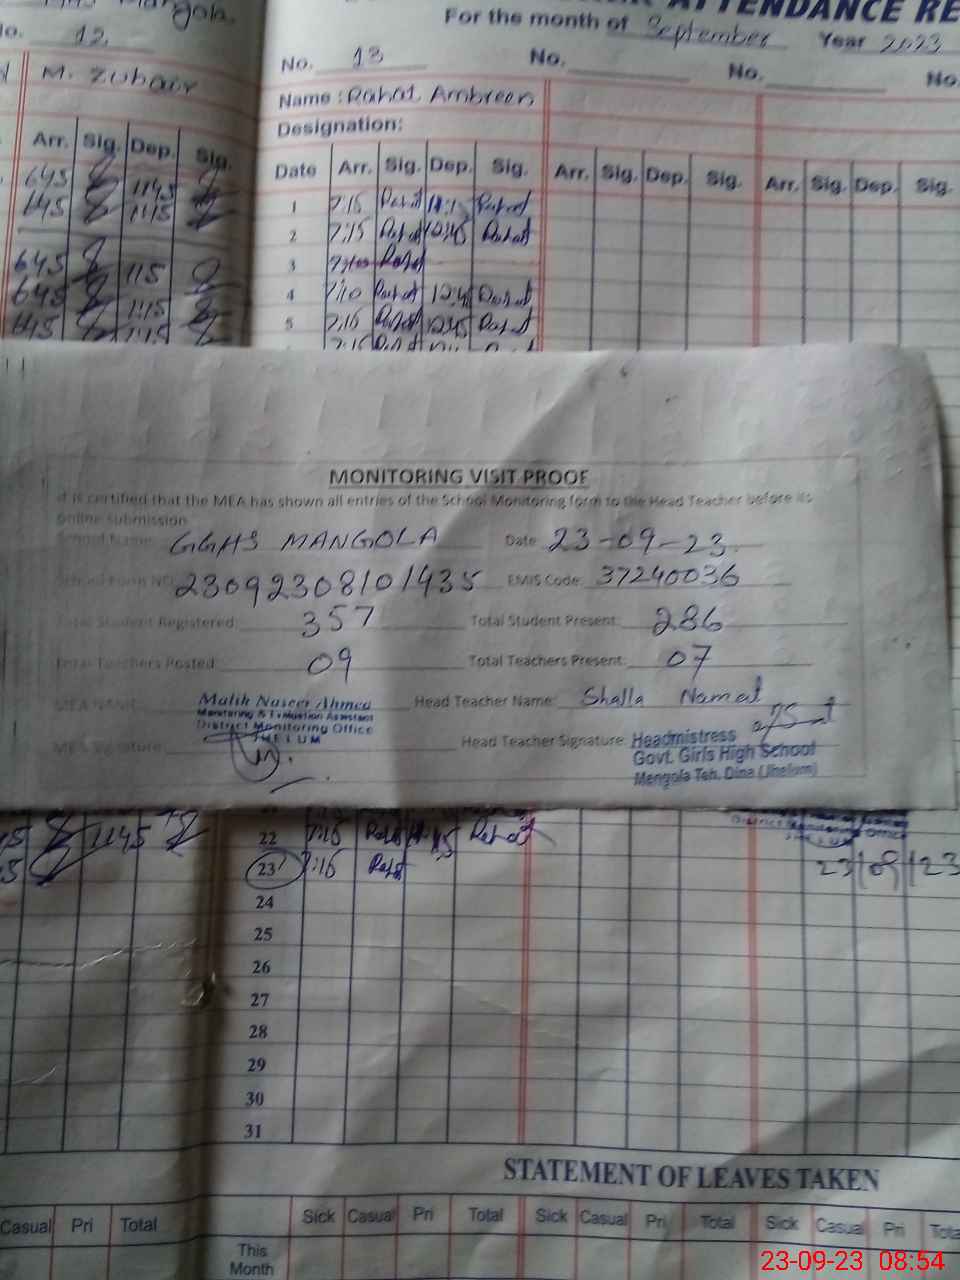 Mangola.
ATTENDANCE RE
For the month of September Year 2023
No. 12
No. 13 No. No. No.
M. Zuhair
Name : Rahat Ambreen
Designation:
Arr. Sig. Dep. Sig.
Date Arr. Sig. Dep. Sig. Arr. Sig. Dep. Sig. Arr. Sig. Dep. Sig.
645 1145 1 7:15 Rahat Rahat
645 1115 2 7:15 Rahat 12:45 Rahat
645 115 3 7:10 Rahat
645 1:45 4 7:10 Rahat 12:45 Rahat
645 1:45 5 7:15 Rahat 12:45 Rahat
MONITORING VISIT PROOF
It is certified that the MEA has shown all entries of the School Monitoring form to the Head Teacher before its
online submission
School Name: GGHS MANGOLA Date 23-09-23
School Form NO: 23092308101435 EMIS Code: 37240036
Total Student Registered: 357 Total Student Present: 286
Total Teachers Posted: 09 Total Teachers Present: 07
MEA NAME: Malik Naseer Ahmed Head Teacher Name: Shaila Namat
Monitoring & Evaluation Assistant
District Monitoring Office
JHELUM
MEA Signature: Head Teacher Signature: Headmistress
Govt. Girls High School
Mengola Teh. Dina (Jhelum)
District Monitoring Office
JHELUM
1145 22 7:15 Rahat 11:45 Rahat
23 7:15 Rahat 23/09/23
24
25
26
27
28
29
30
31
STATEMENT OF LEAVES TAKEN
Casual Pri Total Sick Casual Pri Total Sick Casual Pri Total Sick Casual Pri Tota
This
Month
23-09-23 08:54